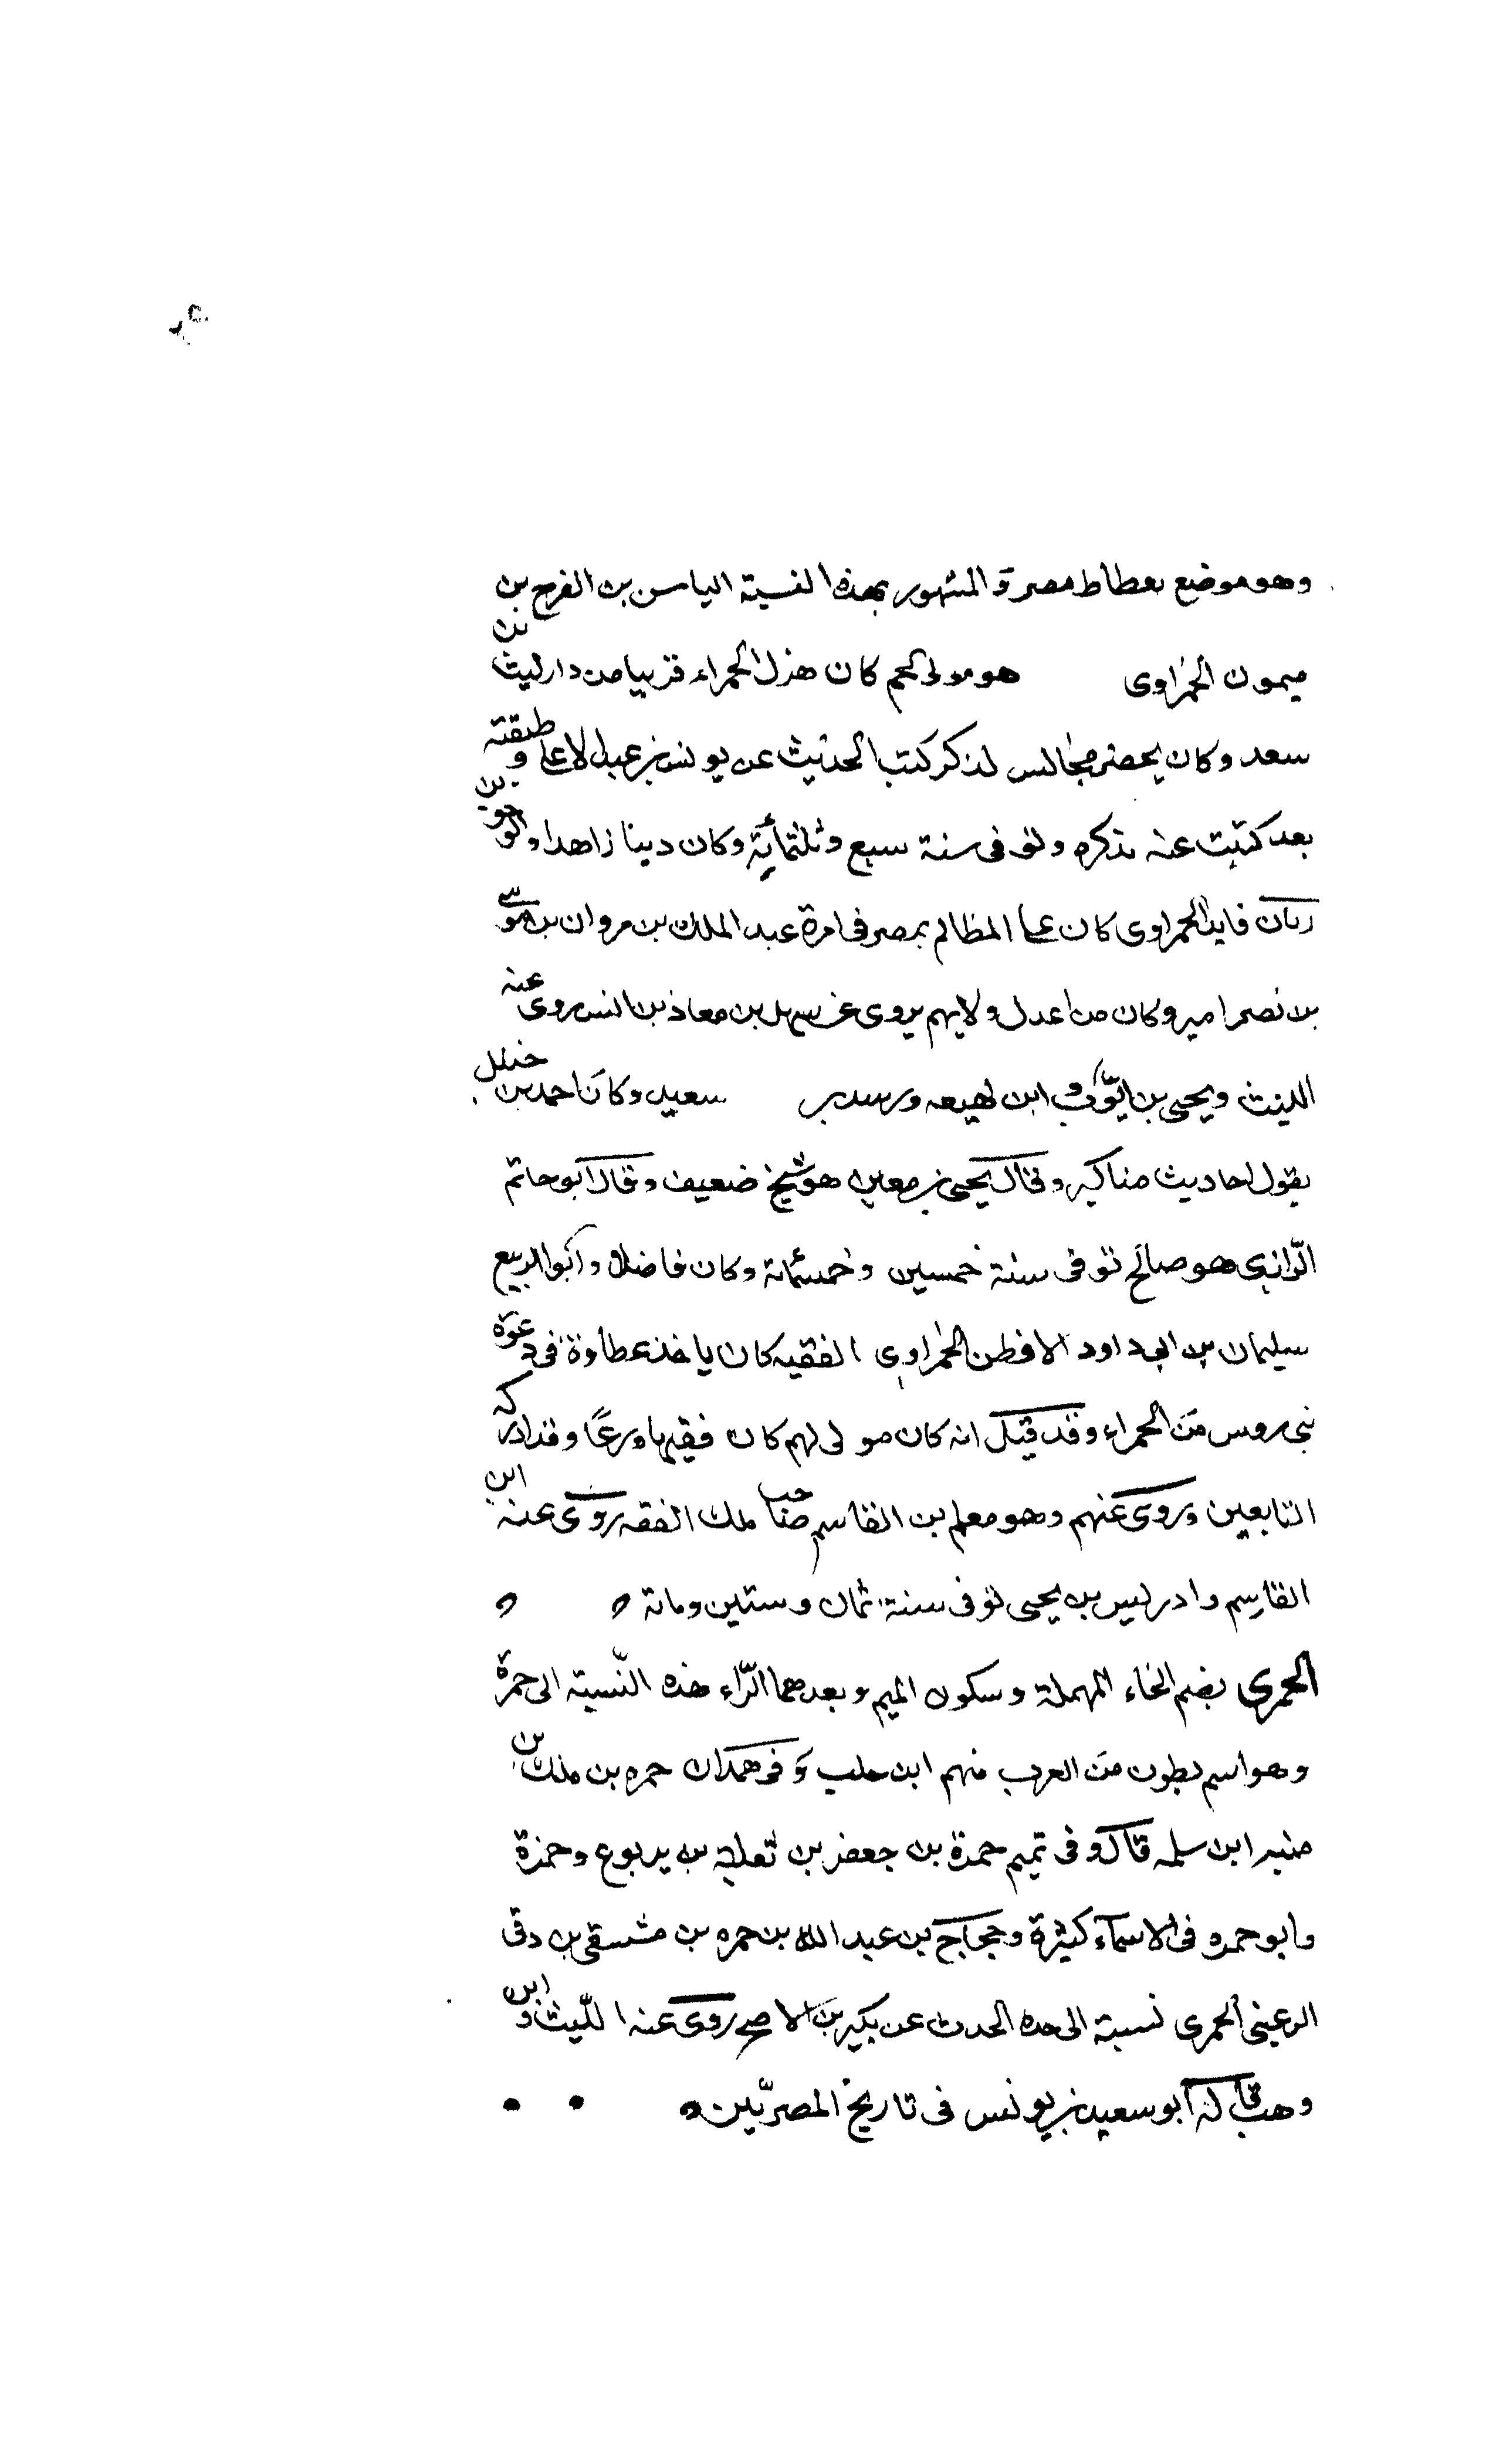 وهو موضع بعطاط مصر و المشهور بهذه النسبة الياس بن الفرج بن
ميمون الحمراوى هو مولى لحم كان هذل الحمراء قريبا من دار ليث بن
سعد وكان يحضر مجالس لذكر كتب الحديث عن يونس بن عبد الاعلى و طبقته
بعد كتبت عنه تذكره وتوفى سنة سبع وثلثمائة وكان دينا زاهدا وابو
زبان فايد الحمراوى كان على المظالم بمصر فى امرة عبد الملك بن مروان بن موسى
بن نصر امير وكان من اعدل ولايهم يروى عن سهل بن معاذ بن انس روى عنه
الليث ويحيى بن ايوب و ابن لهيعه ورسدبن سعيد وكان احمد بن حنبل
يقول احاديث مناكير وقال يحيى بن معين هو شيخ ضعيف وقال ابو حاتم
الرازى هو صالح توفى سنة خمسين وخمسمائة وكان فاضلا وابو الربيع
سليمان بن ابى داود الافطن الحمراوى الفقيه كان ياخذ عطاوة فى دعوة
بنى روس من الحمراء وقد قيل انه كان مولى لهم كان فقيها ورعا وقد ادركه
التابعين وروى عنهم وهو معلم بن القاسم صاحب ملك الفقه روى عنه ابن
القاسم وادريس بن يحيى توفى سنة ثمان وستين ومائة ه ه
الحمرى بضم الحاء المهملة وسكون الميم وبعدهما الراء هذه النسبة الى حمرة
وهو اسم بطون من العرب منهم ابن حلب و فى همدان حمره بن ملك بن
منبه ابن سلمه قال و فى تميم حمرة بن جعفر بن ثعلبة بن يربوع وحمزة
وابو حمره فى الاسماء كثيرة وحجاج بن عبد الله بن حمره بن مشقى بن دقى
الرعينى الحمرى نسبة الى جده الحدث عن بكير بن الاصح روى عنه الليث و ابن
وهب قاله ابو سعيد بن يونس فى تاريخ المصريين ه